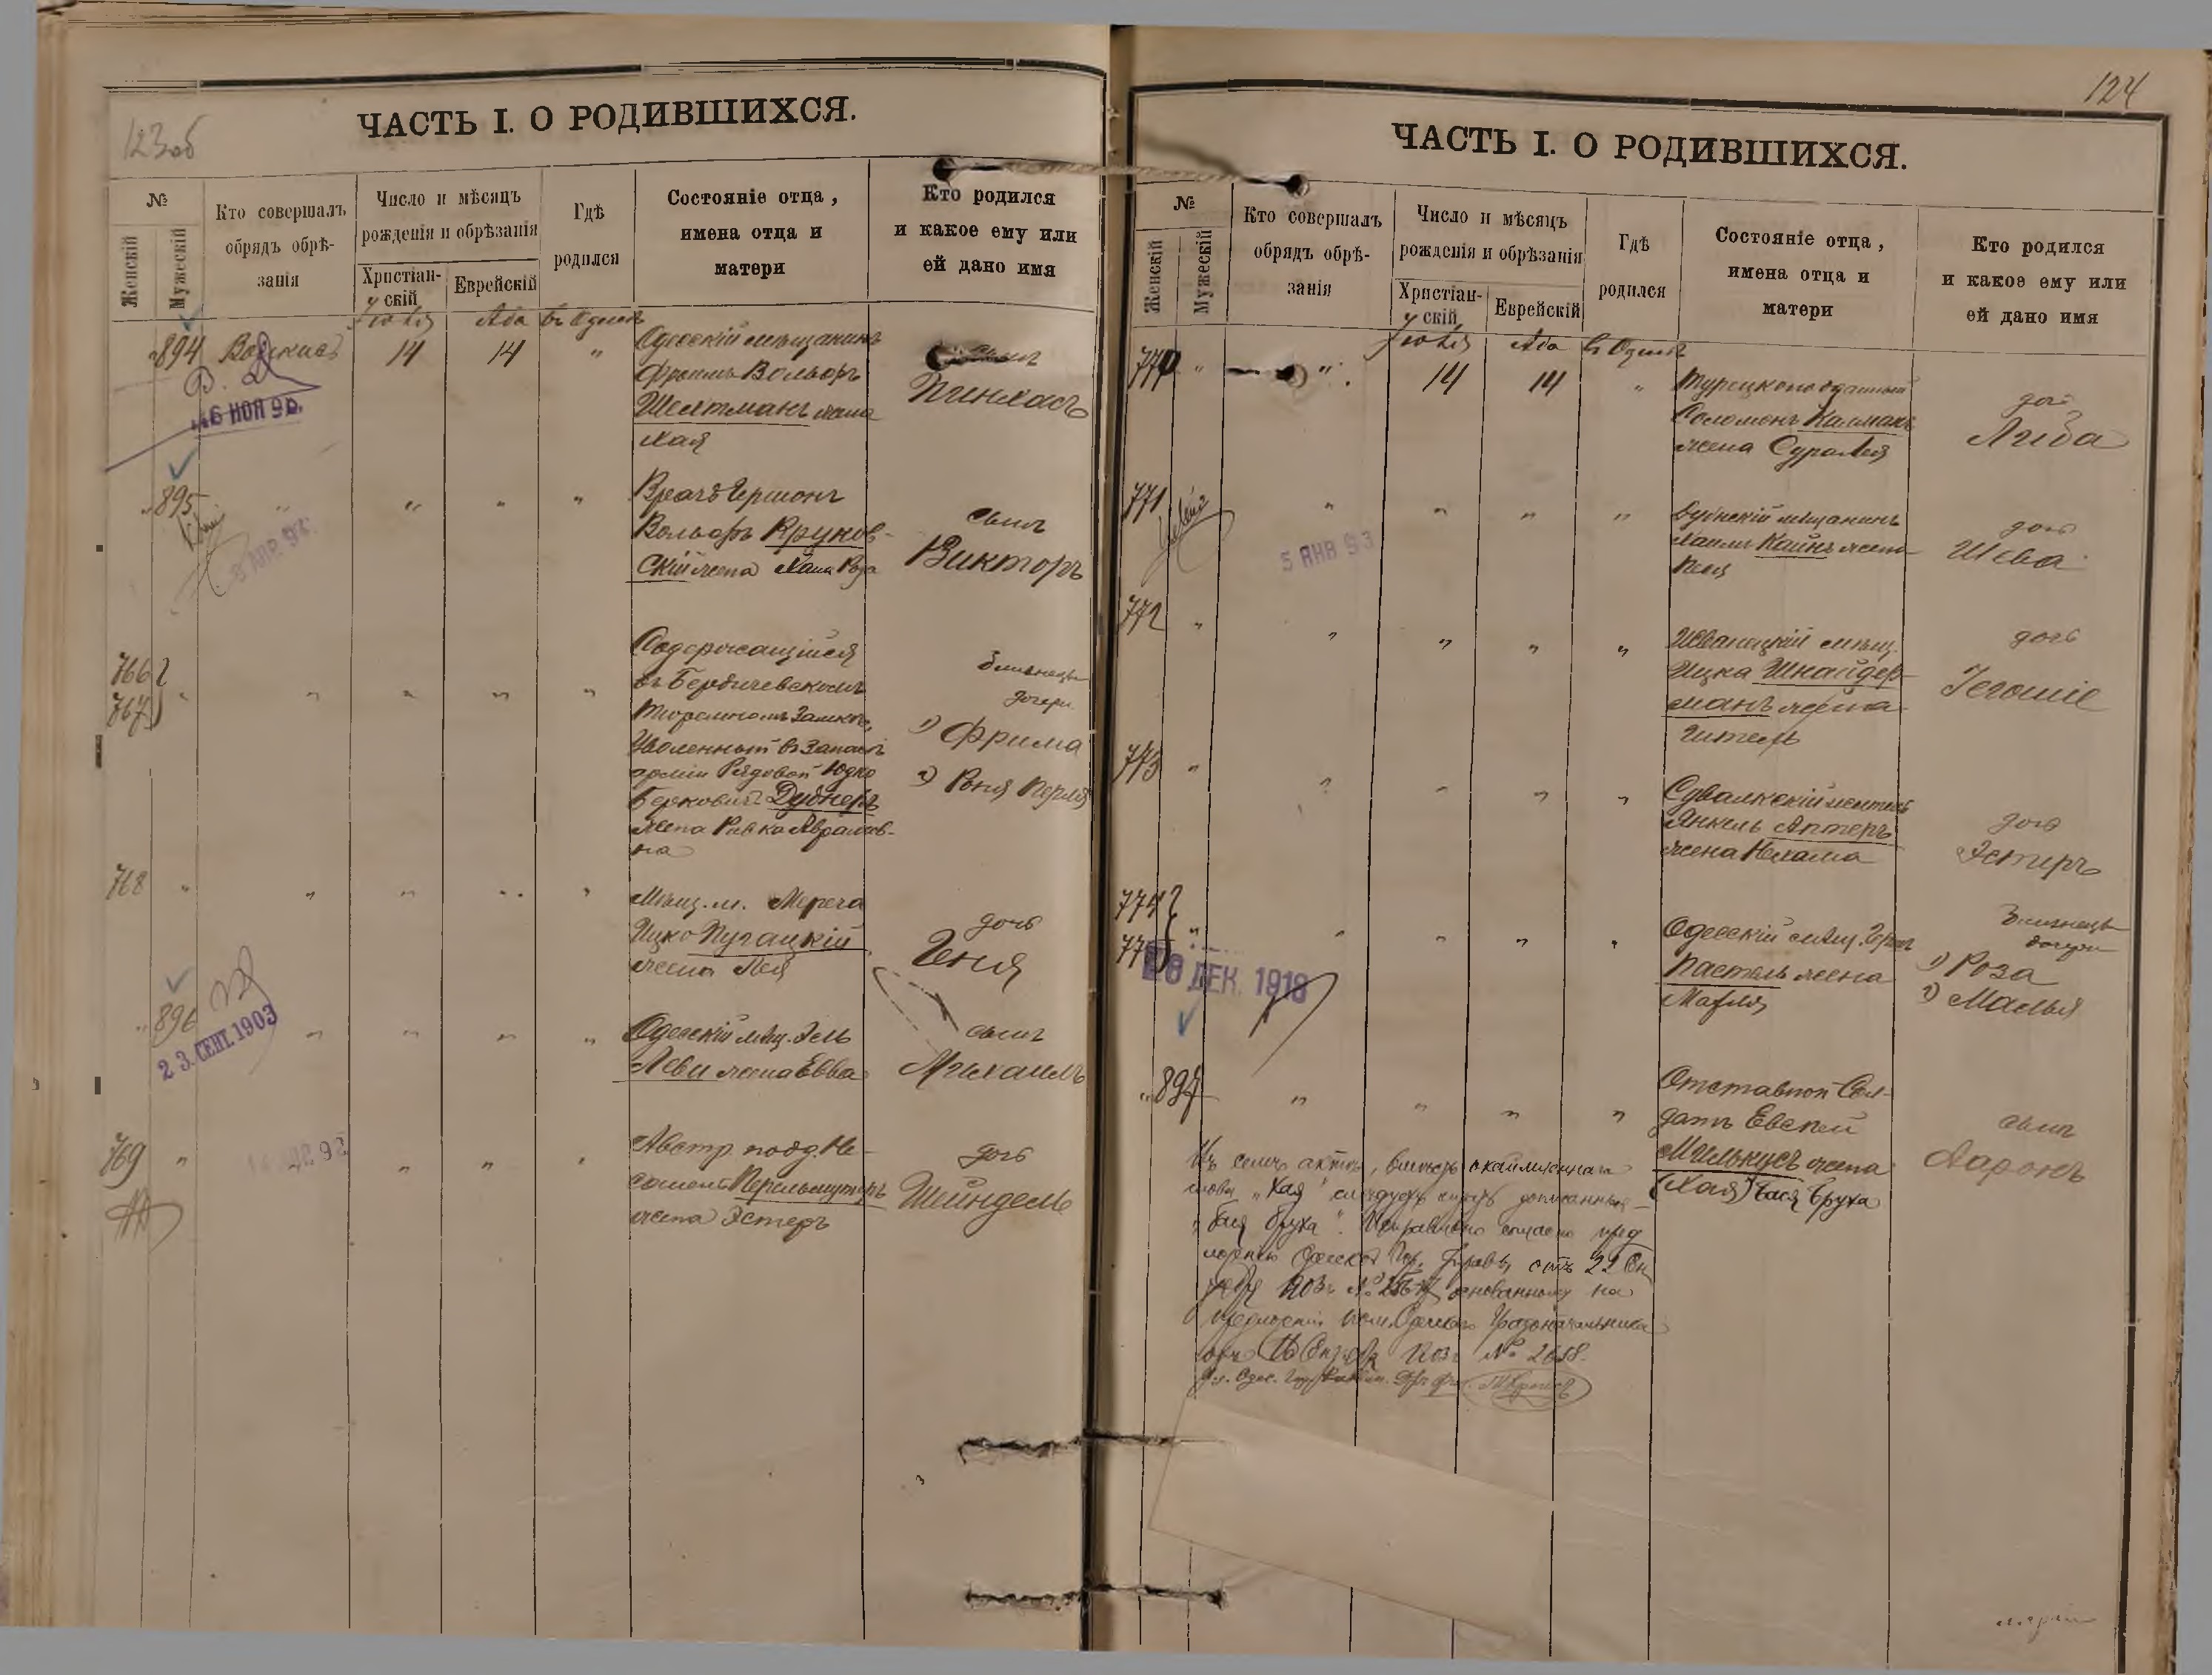 123об
ЧАСТЬ I. О РОДИВШИХСЯ.
№
Женскій
Мужескій
Кто совершалъ
обрядъ обрѣ-
занія
Число и мѣсяцъ
рожденія и обрѣзанія
Христіан-
скій
Еврейскій
Гдѣ
родился
Состояніе отца,
имена отца и
матери
Кто родился
и какое ему или
ей дано имя
Іюля Ава въ Одессѣ
894 14 14 "
Одесскій мѣщанинъ
Фроимъ Вольфъ
Шехтманъ жена
Хая
сынъ
Пинхасъ
16 НОЯ 9
895 " " " "
Врачъ Гершонъ
Вольфъ Круков-
скій жена Хана Роза
сынъ
Викторъ
766
767 " " " " "
Содержащійся
въ Бердичевскомъ
Тюремномъ Замкѣ,
Уволенный въ Запасъ
арміи Рядовой Юдко
Берковичъ Дубнеръ
жена Ривка Абрамов-
на
близнецы
дочери
1) Фрима
2) Роня Перля
768 " " " " "
Мѣщ. м. Мереча
Ицко Пугацкій
жена Лея
дочь
Геня
896 " " " "
23. СЕНТ. 1903
Одесскій мѣщ. Эль
Леви жена Евва
сынъ
Михаилъ
769 " " " "
Австр. подд. Не-
Перельмутеръ
жена Эстеръ
дочь
Шейндель
124
ЧАСТЬ I. О РОДИВШИХСЯ.
№
Женскій
Мужескій
Кто совершалъ
обрядъ обрѣ-
занія
Число и мѣсяцъ
рожденія и обрѣзанія
Христіан-
скій
Еврейскій
Гдѣ
родился
Состояніе отца,
имена отца и
матери
Кто родился
и какое ему или
ей дано имя
Іюля Ава въ Одессѣ
770 " " 14 14 "
Турецкоподданный
Соломонъ Калманъ
жена Сура Лея
дочь
Либа
771 " " " "
5 ЯНВ 93
Дубнскій мѣщанинъ
Хаимъ Кайнъ жена
Песя
дочь
Шева
772 " " " " "
мѣщ.
Ицка Шнайдер-
манъ жена
Гитель
дочь
773 " " " " "
Сувалкскій житель
Янкель Аптеръ
жена Нехама
дочь
Эстеръ
774
775 " " " " "
28 ДЕК. 1918
Одесскій мѣщ. Герш
Пастель жена
близнецы
дочери
1) Роза
2) Малья
897 " " " "
Отставной Сол-
датъ Евсей
Милькусъ жена
(Хая) Бася Бруха
сынъ
Ааронъ
Въ семъ актѣ, вмѣсто окаймленнаго
слова "Хая" слѣдуетъ дописанныя
"Бася Бруха". Исправлено согласно пред
ложенію Одесской Гор. Управы отъ 22 Ок
тября 1903 г. № основанному на
предложеніи Одесскаго Градоначальника
отъ 16 Октября 1903 г. № 2658.